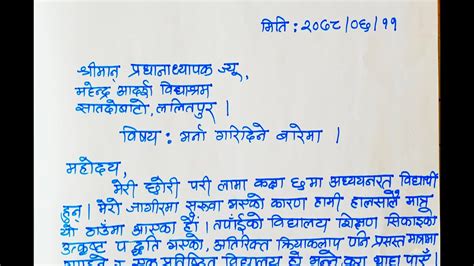 मिति : २०७८/०६/११
श्रीमान् प्रधानाध्यापक ज्यू,
महेन्द्र आदर्श विद्याश्रम
सातदोबाटो, ललितपुर ।
विषय : भर्ना गरिदिने बारेमा ।
महोदय,
मेरी छोरी परी लामा कक्षा ६ मा अध्ययनरत विद्यार्थी
हुन् । मेरो जागिरमा सरुवा भएको कारण हामी हालसालै मात्र
यो ठाउँमा आएका हौं । तपाईंको विद्यालय शिक्षण सिकाइको
उत्कृष्ट पद्धति भएको, अतिरिक्त क्रियाकलाप पनि प्रसस्त मात्रामा
एक प्रतिष्ठित विद्यालय हो भन्ने कुरा थाहा पाएँ ।